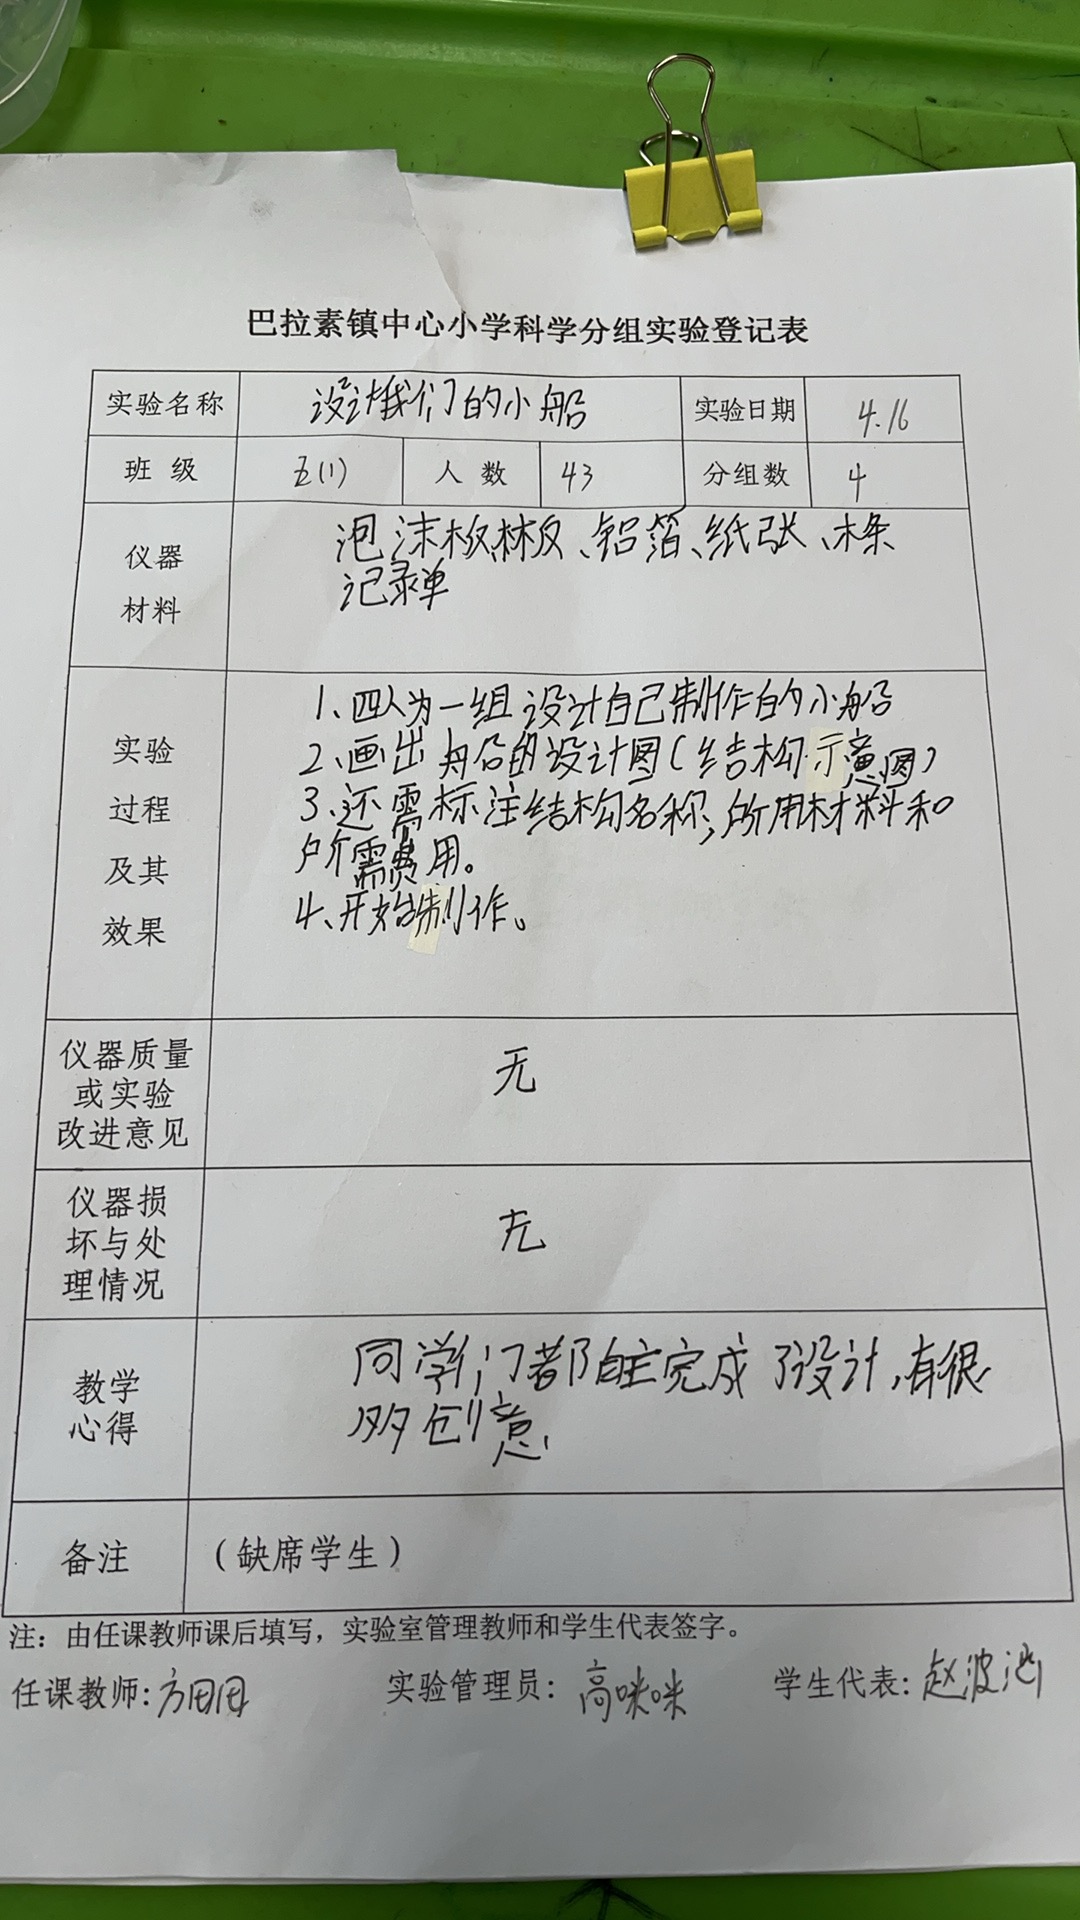 巴拉素镇中心小学科学分组实验登记表
实验名称 设计我们的小船 实验日期 4.16
班级 五(1) 人数 43 分组数 4
仪器材料
泡沫板、木板、铝箔、纸张、木条
记录单
实验过程及其效果
1、四人为一组设计自己制作的小船
2、画出船的设计图(结构示意图)
3、还需标注结构名称,所用材料和
所需费用。
4、开始制作。
仪器质量或实验改进意见
无
仪器损坏与处理情况
无
教学心得
同学们都自主完成了设计,有很
多创意
备注 (缺席学生)
注:由任课教师课后填写,实验室管理教师和学生代表签字。
任课教师: 实验管理员:高咪咪 学生代表:赵波